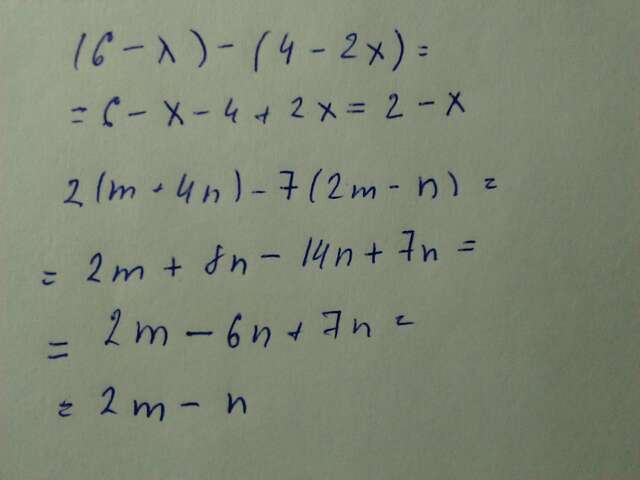 (6 - x) - (4 - 2x) =
= 6 - x - 4 + 2x = 2 - x
2(m + 4n) - 7(2m - n) =
= 2m + 8n - 14n + 7n =
= 2m - 6n + 7n =
= 2m - n